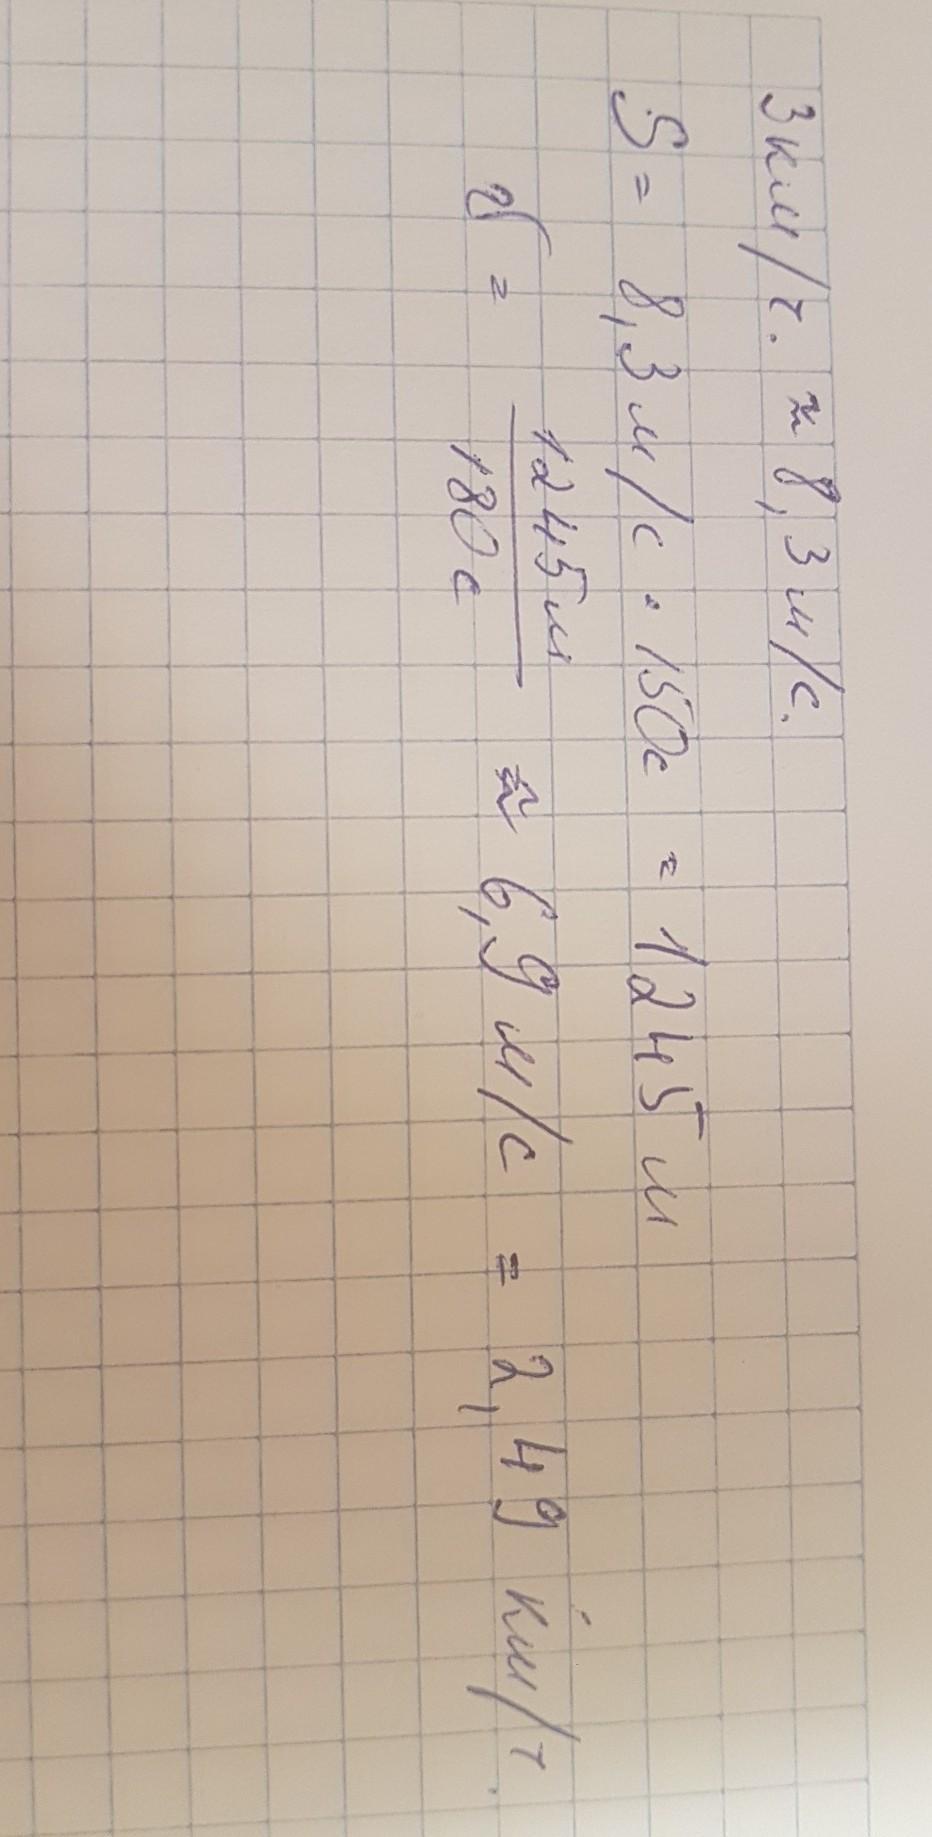 3км/ч. ≈ 8,3м/с.
S = 8,3м/с · 150с = 1245м
v = 1245м / 180с ≈ 6,9м/с = 2,49 км/ч.